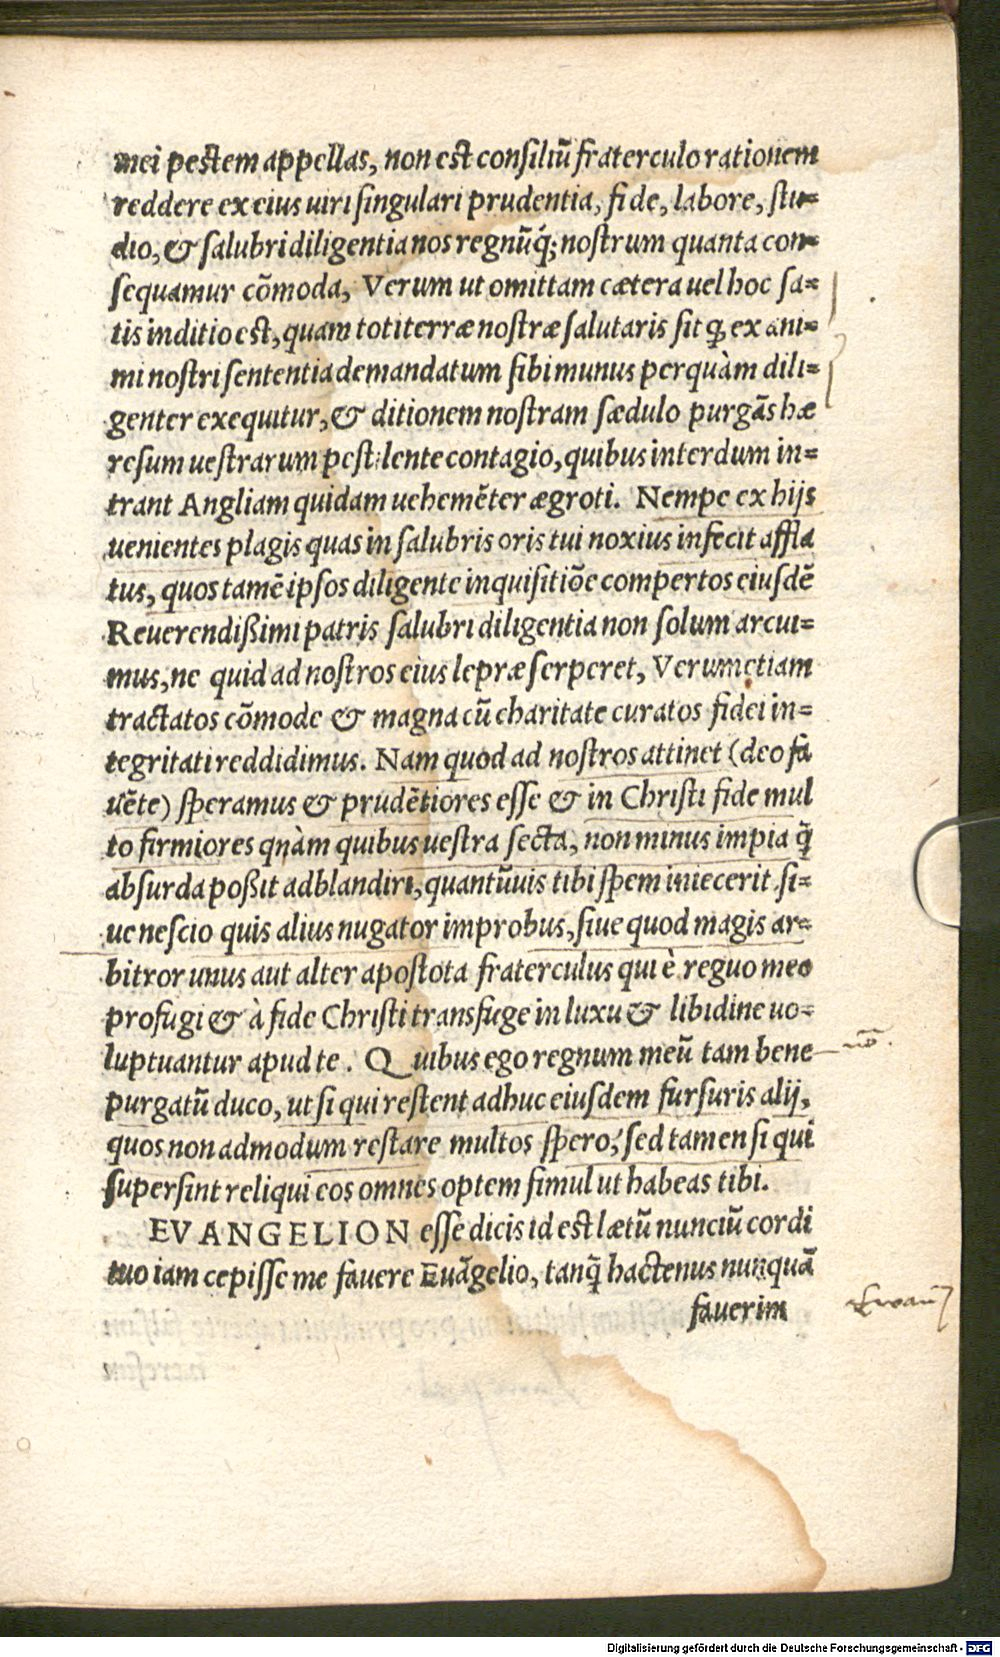 mei pestem appellas, non est consiliū fraterculo rationem
reddere ex eius uiri singulari prudentia, fide, labore, stu=
dio, & salubri diligentia nos regnūq́; nostrum quanta con=
sequamur cōmoda, Verum ut omittam cætera uel hoc sa=
tis inditio est, quam toti terræ nostræ salutaris sit ꝙ ex ani=
mi nostri sententia demandatum sibi munus perquàm dili=
genter exequitur, & ditionem nostram sædulo purgās hæ
resum uestrarum pestilente contagio, quibus interdum in=
trant Angliam quidam uehemēter ægroti. Nempe ex hijs
uenientes plagis quas insalubris oris tui noxius infecit affla
tus, quos tamē ipsos diligente inquisitiōe compertos eiusdē
Reuerendißimi patris salubri diligentia non solum arcui=
mus, ne quid ad nostros eius lepræ serperet, Verumetiam
tractatos cōmode & magna cū charitate curatos fidei in=
tegritati reddidimus. Nam quod ad nostros attinet (deo fa
uēte) speramus & prudētiores esse & in Christi fide mul
to firmiores quàm quibus uestra secta, non minus impia q̄
absurda poßit adblandiri, quantūuis tibi spem iniecerit si=
ue nescio quis alius nugator improbus, siue quod magis ar=
bitror unus aut alter apostota fraterculus qui è reguo meo
profugi & à fide Christi transfuge in luxu & libidine uo=
luptuantur apud te. Quibus ego regnum meū tam bene
purgatū duco, ut si qui restent adhuc eiusdem fursuris alij,
quos non admodum restare multos spero, sed tamen si qui
supersint reliqui eos omnes optem simul ut habeas tibi.
EVANGELION esse dicis id est lætū nunciū cordi
tuo iam cepisse me fauere Euāgelio, tanq̄ hactenus nunquā
fauerim
Digitalisierung gefördert durch die Deutsche Forschungsgemeinschaft - DFG